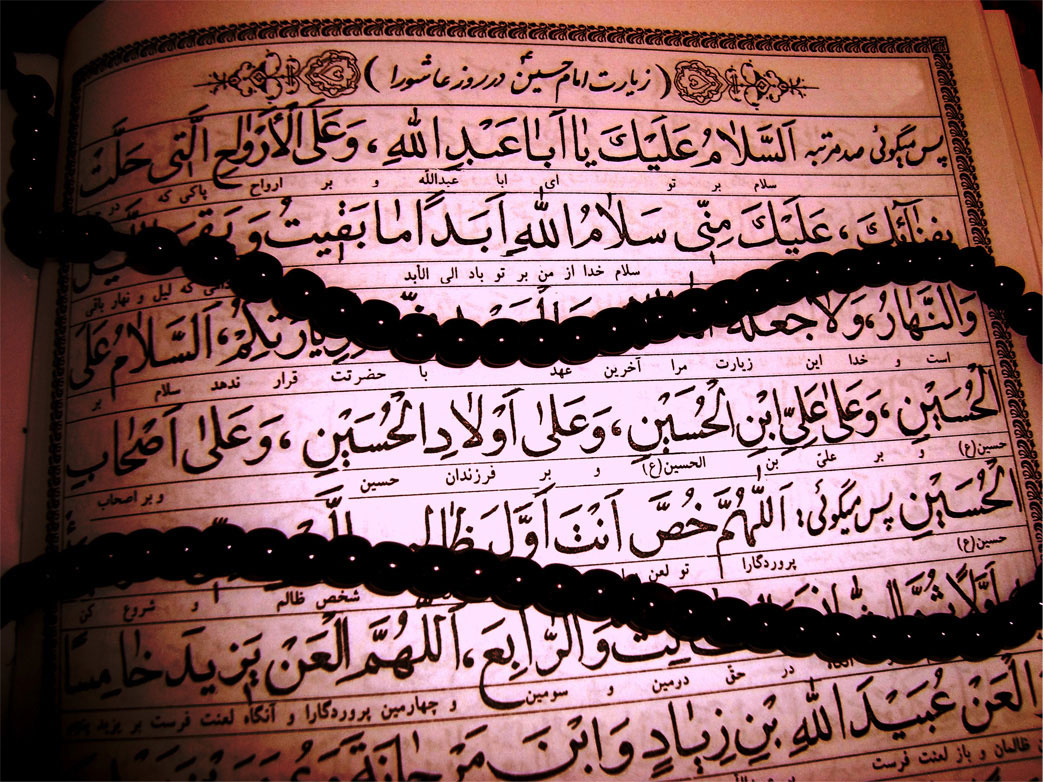 (زیارت امام حسین ع در روز عاشورا)
پس میگوئی صد مرتبه اَلسَّلامُ عَلَیْكَ یا اَبا عَبْدِ اللهِ، وَ عَلَی الْأَرْواحِ الَّتی حَلَّتْ
سلام بر تو ای ابا عبداللّه و بر ارواح پاکی که در
بِفِنٰائِكَ، عَلَیْكَ مِنّی سَلامُ اللهِ اَبَداً ما بَقیتُ وَ بَقِیَ
سلام خدا از من بر تو باد الی الابد که لیل و نهار باقی
وَالنَّهارُ، وَلا جَعَلَهُ اللهُ لِزِیارَتِکُمْ، اَلسَّلامُ عَلَی
است و خدا این زیارت مرا آخرین عهد با حضرتت قرار ندهد سلام بر
الْحُسَیْنِ، وَ عَلی عَلِیِّ ابْنِ الْحُسَیْنِ، وَ عَلیٰ اَوْلادِ الْحُسَیْنِ، وَ عَلیٰ اَصْحٰابِ
حسین (ع) و بر علیّ بن الحسین (ع) و بر فرزندان حسین و بر اصحاب
الْحُسَیْنِ پس میگوئی: اَللّٰهُمَّ خُصَّ اَنْتَ اَوَّلَ ظالِمٍ
حسین (ع) پروردگارا تو لعن
شخص ظالم و شروع کن
اَوَّلاً ثُمَّ وَالرّابِعَ، اَللّٰهُمَّ الْعَنْ یَزیدَ خامِساً
در حقّ دومین و سومین و چهارمین پروردگارا و آنگاه لعنت فرست بر یزید پنجم
الْعَنْ عُبَیْدَ اللهِ بْنَ زِیادٍ وَ ابْنَ مَرْجانَةَ
ظالمان و باز لعنت فرست